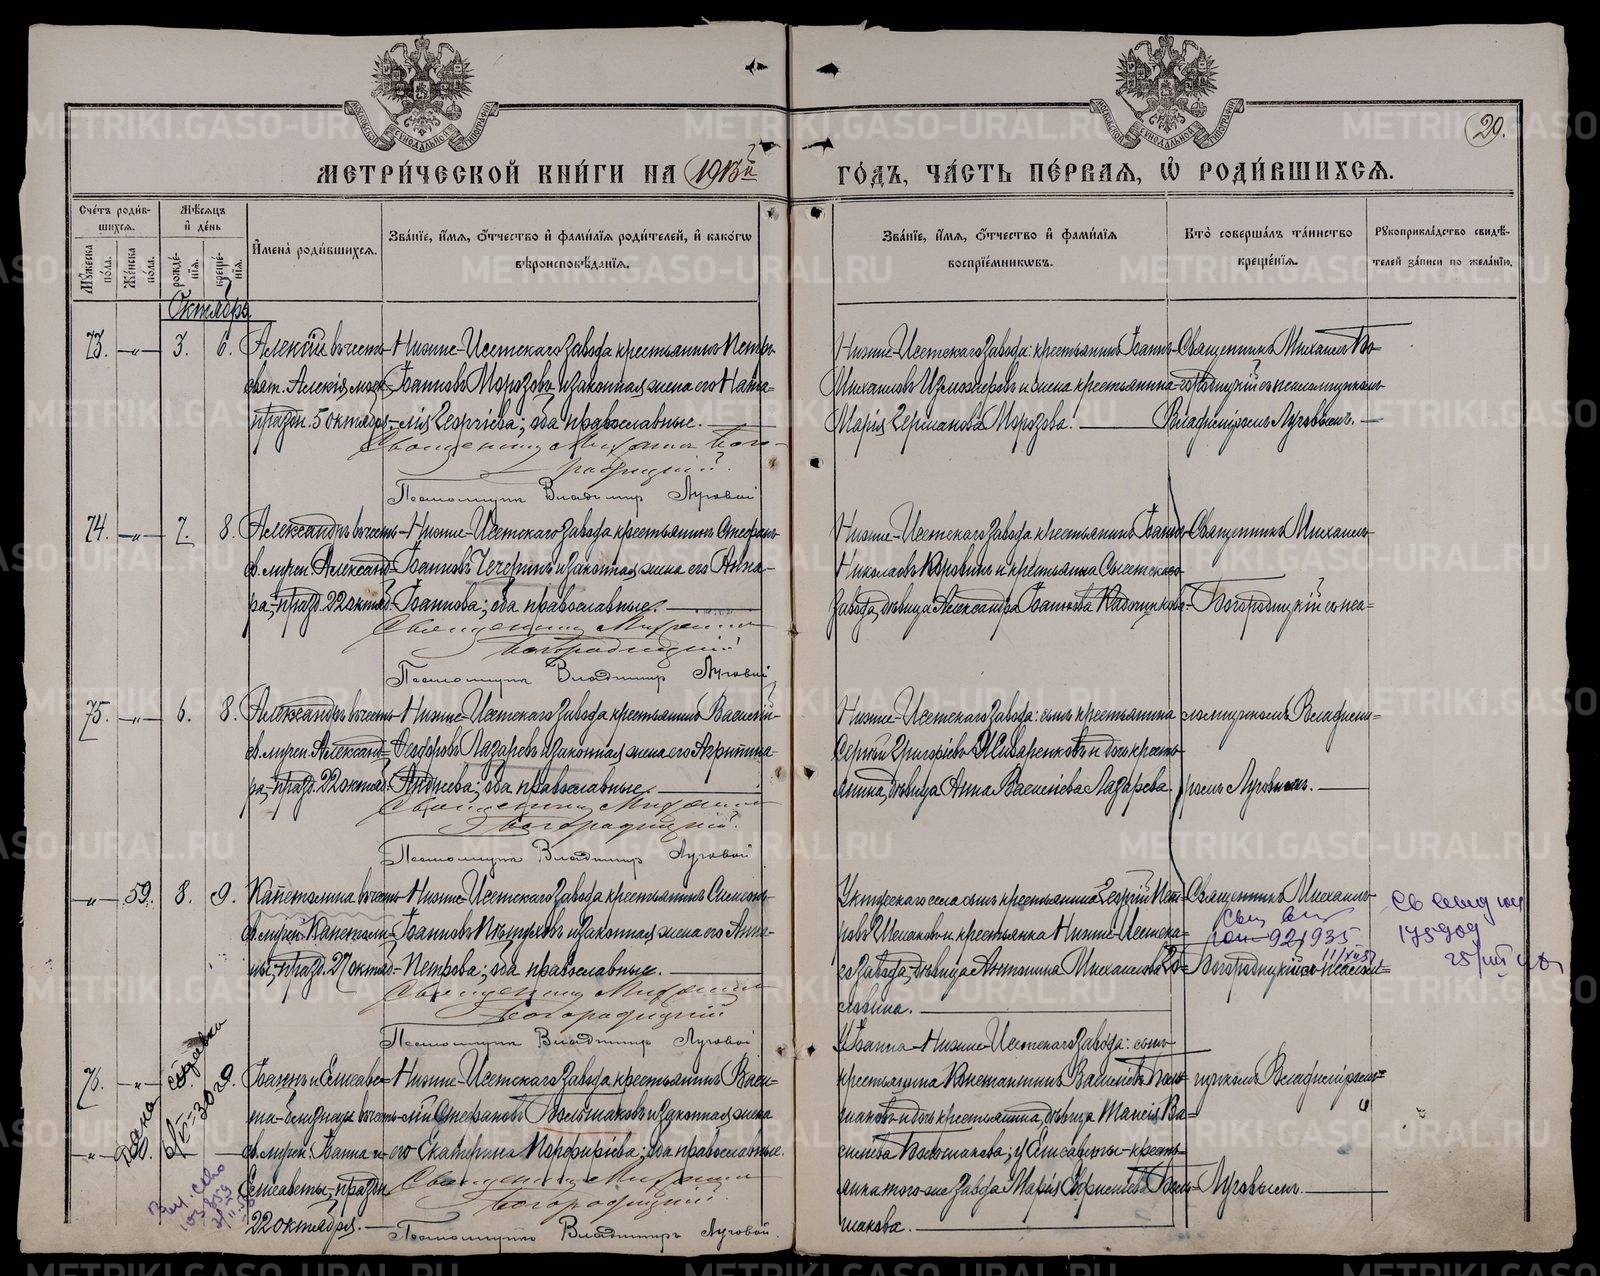 МЕТРИ́ЧЕСКОЙ КНИ́ГИ НА 1913й ГО́ДЪ, ЧА́СТЬ ПЕ́РВАЯ, Ѡ РОДИ́ВШИХСЯ.
20.
Сче́тъ роди́в-
шихся.
Мѣ́сяцъ
и́ де́нь
Му́жеска по́ла.
Же́нска по́ла.
рожде́-
нія.
креще́-
нія.
И́мена̀ роди́вшихся.
Зва́ніе, и́мя, ѻ́тчество и́ фами́лія роди́телей, и́ како́гѡ
вѣроисповѣ́данія.
Зва́ніе, и́мя, ѻ́тчество и́ фами́лія
воспріе́мниковъ.
Кто̀ соверша́лъ та́инство
креще́нія.
Рꙋкоприкла́дство свидѣ́-
телей за́писи по жела́нію.
Октябрь.
73. -„- 3. 6.
Алексій въ честь
свят. Алексія, моск.
праздн. 5 октября.
Нижне-Исетскаго завода крестьянинъ Петръ
Іоанновъ Морозовъ и законная жена его Ната-
лія Георгіева; оба православные.
Священникъ Михаилъ Бого-
родицкій.
Псаломщикъ Владимир Луговой
Нижне-Исетскаго завода: крестьянинъ Іоаннъ
Михаиловъ и жена крестьянина
Марія Германова Морозова.
Священникъ Михаилъ Бо-
городицкій съ псаломщикомъ
Владиміромъ Луговымъ.
74. -„- 7. 8.
Александръ въ честь
св. мучен. Александ-
ра, празд. 22 октяб.
Нижне-Исетскаго завода крестьянинъ Стефанъ
Іоанновъ Чечеринъ и законная жена его Анна
Іоаннова; оба православные.
Священникъ Михаилъ
Богородицкій
Псаломщикъ Владимир Луговой
Нижне-Исетскаго завода крестьянинъ Іоаннъ
Николаевъ Коровинъ и крестьянка Сысетскаго
завода, дѣвица Александра Іоаннова
Священникъ Михаилъ
Богородицкій съ пса-
75. -„- 6. 8.
Александръ въ честь
св. мучен. Александ-
ра, празд. 22 октяб.
Нижне-Исетскаго завода крестьянинъ Василій
Ѳеодоровъ Лазаревъ и законная жена его Агриппина
Андреева; оба православные.
Священникъ Михаилъ
Богородицкій.
Псаломщикъ Владимир Луговой
Нижне-Исетскаго завода: сынъ крестьянина
Сергій Григоріевъ и дочь кресть-
янина, дѣвица Анна Васильева Лазарева.
ломщикомъ Владимі-
ромъ Луговымъ.
-„- 59. 8. 9.
Капетолина въ честь
св. мучен. Капетоли-
ны, празд. 27 октяб.
Нижне-Исетскаго завода крестьянинъ Симеонъ
Іоанновъ Пѣтуховъ и законная жена его Анна
Петрова; оба православные.
Священникъ Михаилъ
Богородицкій
Псаломщикъ Владимир Луговой
Уктусскаго села сынъ крестьянина Георгій Пет-
ровъ и крестьянка Нижне-Исетска-
го завода, дѣвица Антонина Михаилова
Священникъ Михаилъ
Богородицкій съ псалом-
921935
11/XII 53
76. -„- 29.
справка
Іоаннъ и Елисаве-
та-близнецы въ честь
св. мучен. Іоанна и
Елисаветы, праздн.
22 октября.
Нижне-Исетскаго завода крестьянинъ Васи-
лій Стефановъ Большаковъ и законная жена
его Екатерина Порфиріева; оба православные.
Священникъ Михаилъ
Богородицкій.
Псаломщикъ Владимиръ Луговой.
У Іоанна-Нижне-Исетскаго завода: сынъ
крестьянина Константинъ Васильевъ Боль-
шаковъ и дочь крестьянина, дѣвица Таисія Ва-
сильева Большакова; у Елисаветы-кресть-
янка того-же завода Марія Боль-
шакова.
щикомъ Владиміромъ
Луговымъ.
METRIKI.GASO-URAL.RU